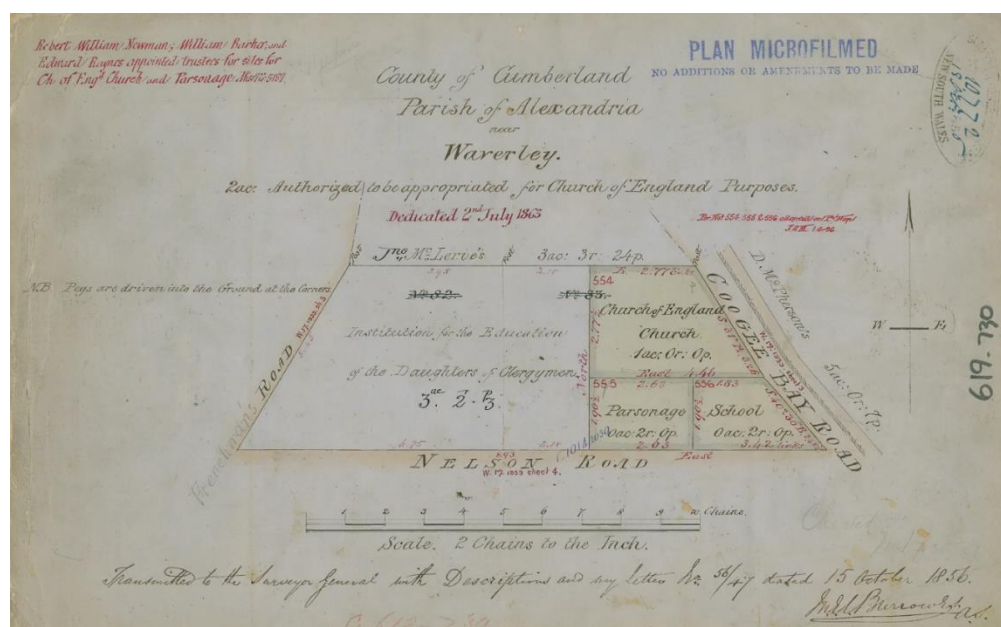 Robert William Newman; William Barker and
Edward Raynes appointed trustees for sites for
Ch. of Eng.d Church and Parsonage.
PLAN MICROFILMED
NO ADDITIONS OR AMENDMENTS TO BE MADE
NEW SOUTH WALES
County of Cumberland
Parish of Alexandria
near
Waverley.
2ac: Authorized to be appropriated for Church of England Purposes.
Dedicated 2nd July 1863
Jno. Mc Lerie's 3ac: 3r: 24p.
N.B Pegs are driven into the Ground at the Corners
No 82.
No 83.
554
Church of England
Church
1ac: 0r: 0p.
East 4.46
Institution for the Education
of the Daughters of Clergymen
3ac 2r P3
North
555
2.63
Parsonage
0ac: 2r: 0p.
2.63
556
School
0ac: 2r: 0p.
3.42 links
East
COOGEE BAY ROAD
D. McPherson's
5ac: 0r: 7p.
Frenchmans ROAD
NELSON ROAD
W. 17. 1033 sheet 4.
W E
619.730
1 2 3 4 5 6 7 8 9 10 Chains.
Scale. 2 Chains to the Inch.
Transmitted to the Surveyor General with Descriptions and my letter No. 56/47 dated 15 October 1856.